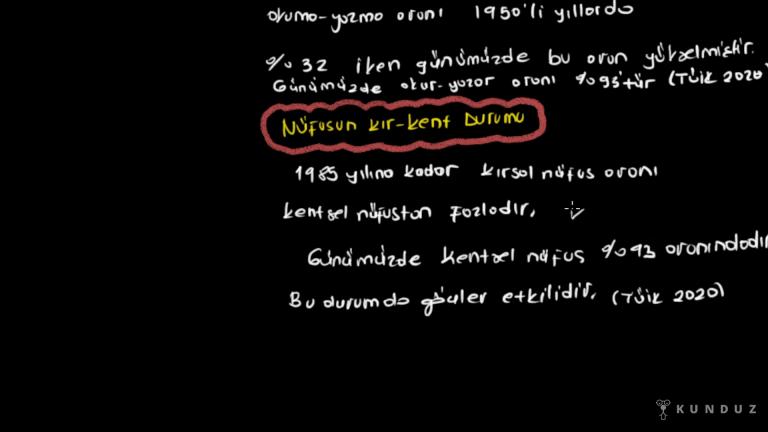 okuma-yazma oranı 1950'li yıllarda
%32 iken günümüzde bu oran yükselmiştir.
Günümüzde okur-yazar oranı %95'tür (TÜİK 2020)
Nüfusun kır-kent Durumu
1985 yılına kadar kırsal nüfus oranı
kentsel nüfustan fazladır.
Günümüzde kentsel nüfus %93 oranındadır
Bu durumda göçler etkilidir. (TÜİK 2020)
KUNDUZ